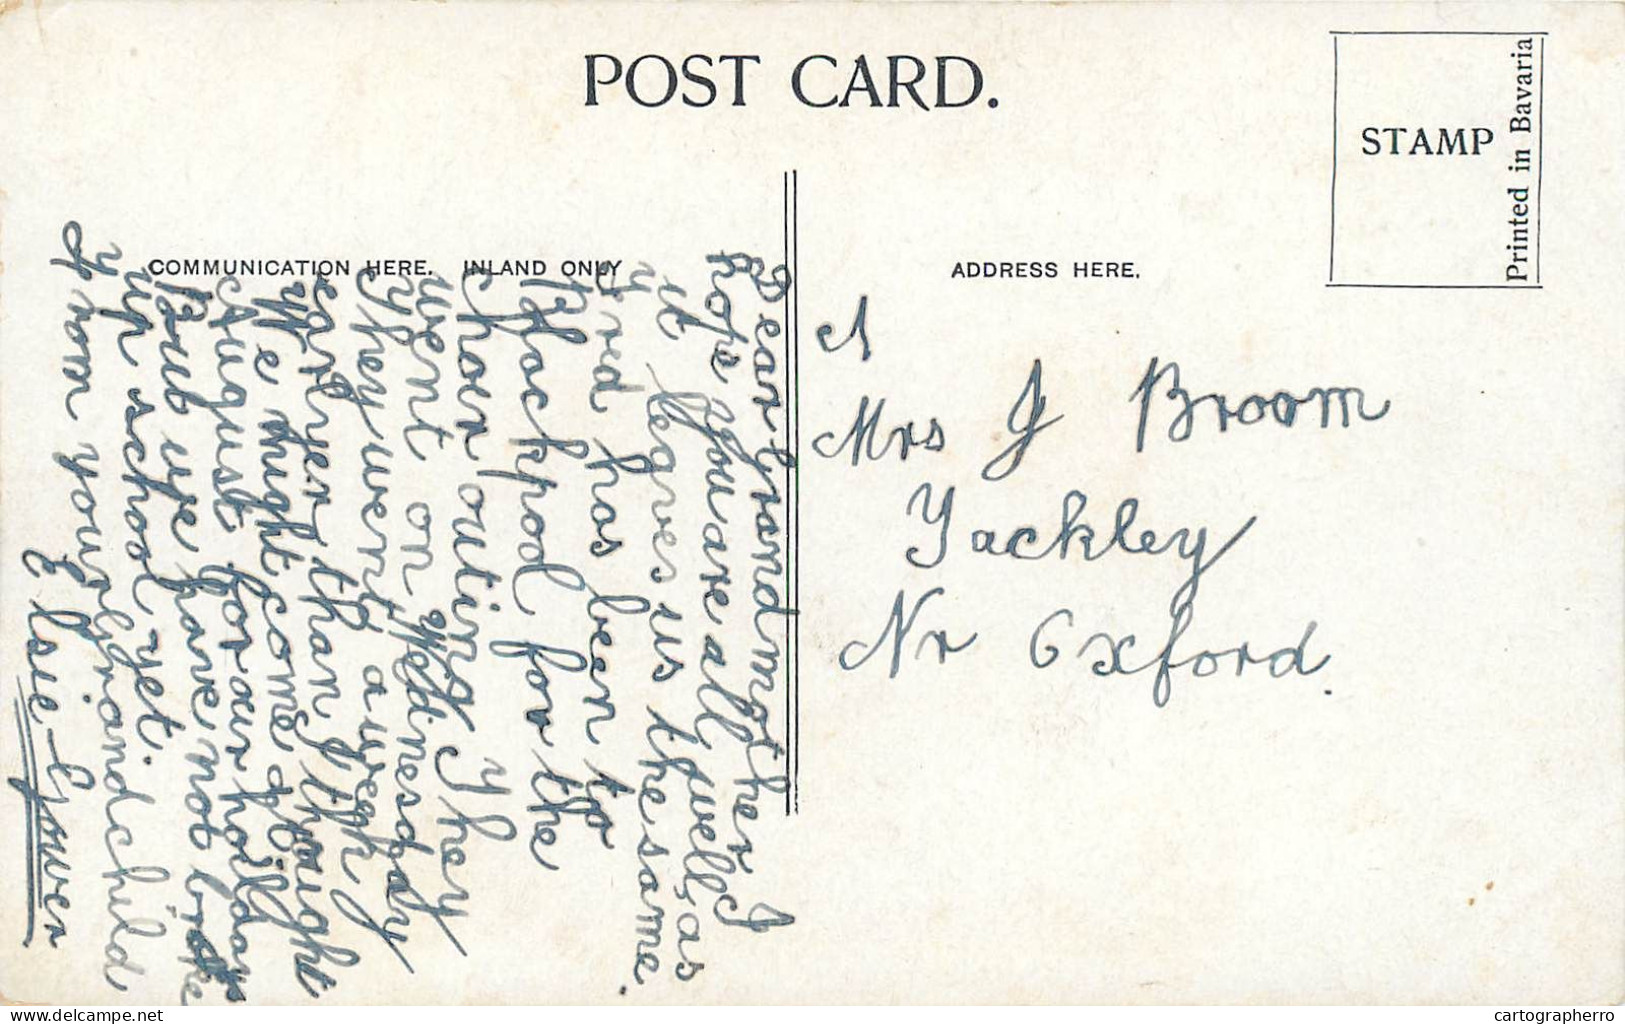 POST CARD.
STAMP
Printed in Bavaria
COMMUNICATION HERE. INLAND ONLY
ADDRESS HERE.
Dear Grandmother I
hope you are all well, as
it leaves us the same.
Fred has been to
Blackpool for the
choir outing They
went on Wednesday
They went a week
earlyer than I thought
We might come
August for our holidays
But we have not broke
up school yet.
From your Grandchild
Elsie Gower
Mrs J Broom
Tackley
Nr Oxford.
cartographerro